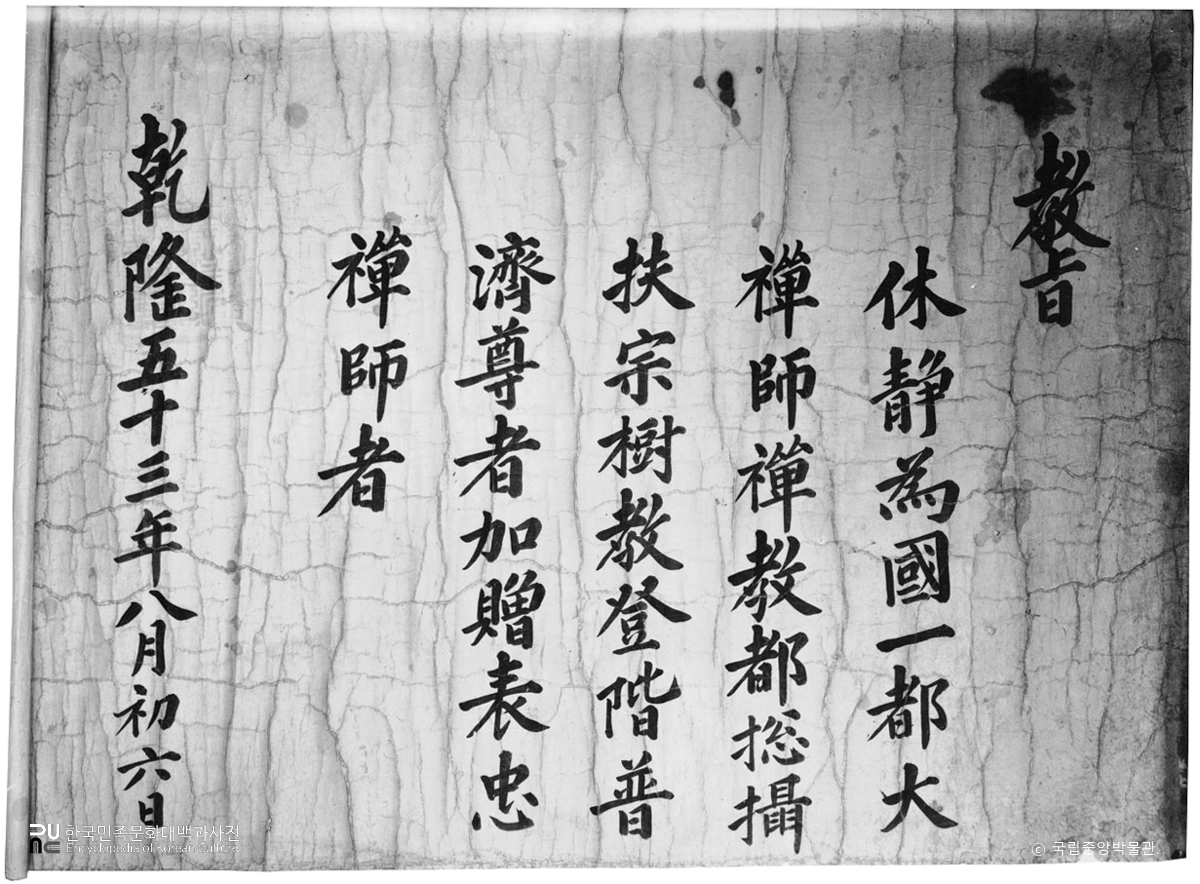 教旨
休静為國一都大
禪師禪教都揔攝
扶宗樹教登階普
濟尊者加贈表忠
禪師者
乾隆五十三年八月初六日
한국민족문화대백과사전
Encyclopedia of Korean Culture
© 국립중앙박물관